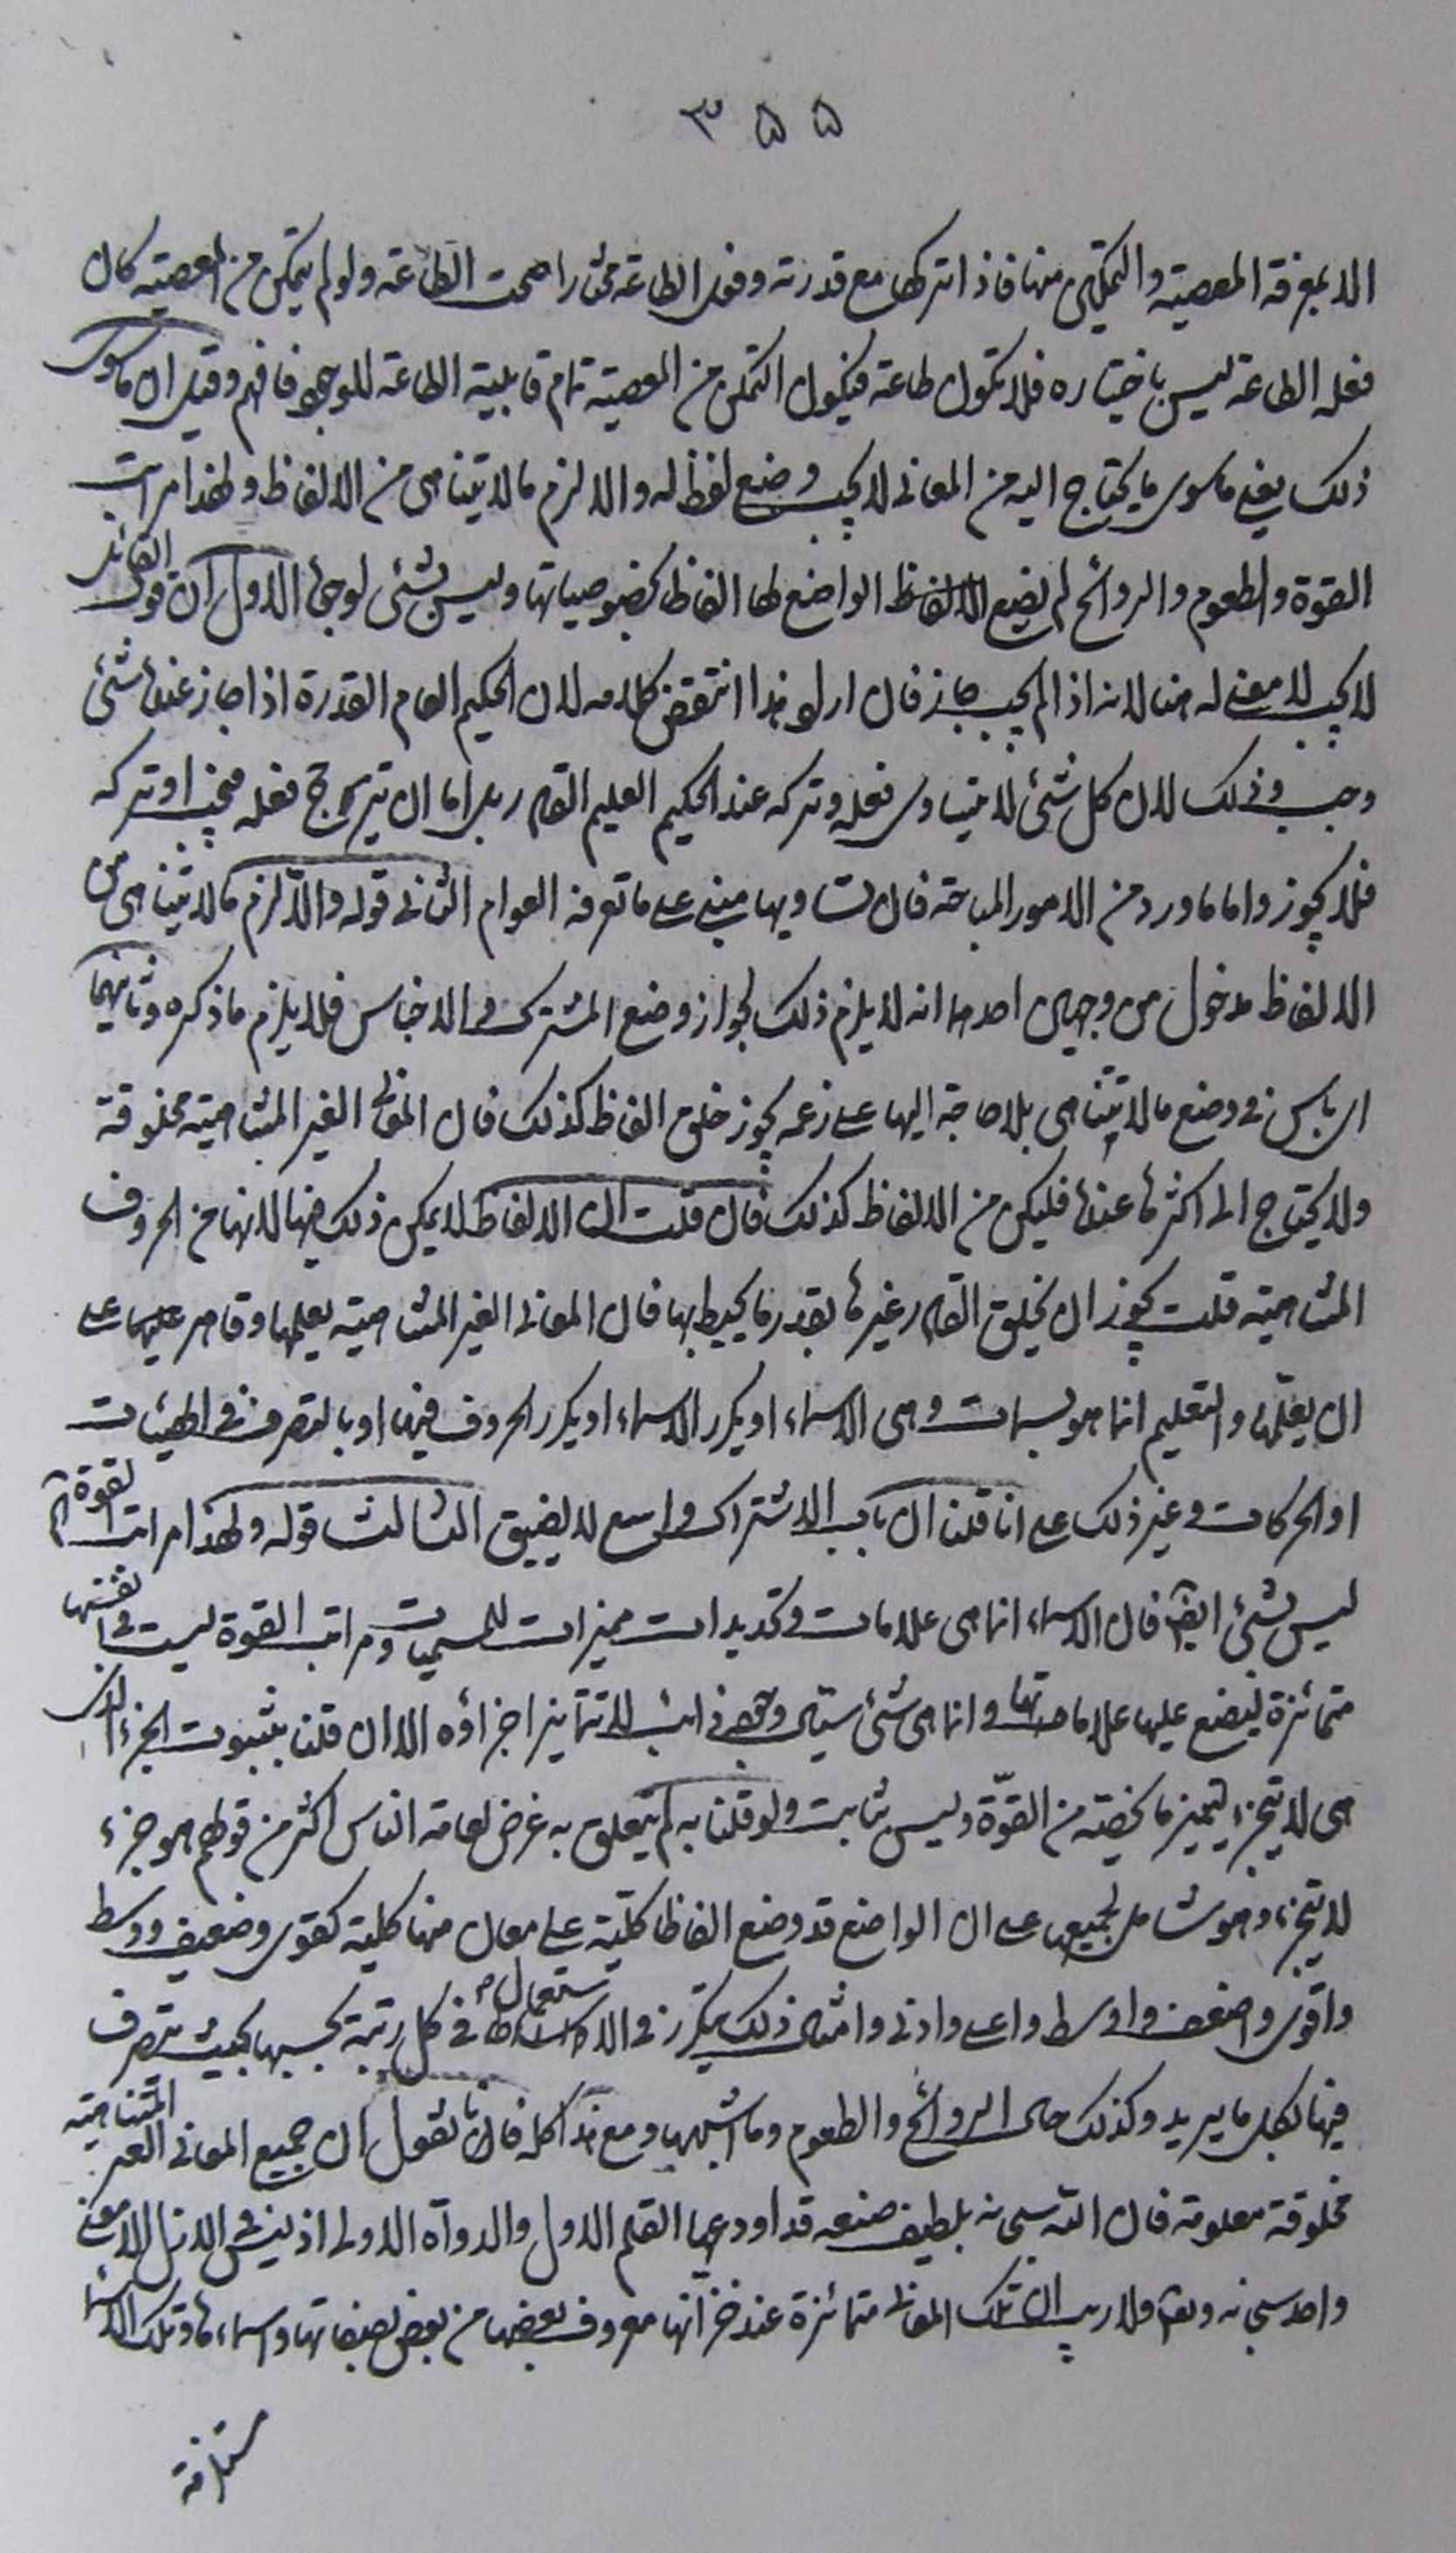 ٣٥٥
الا بمعرفة المعصية والتمكين منها فاذا تركها مع قدرته وفعل الطاعة مختارا صحت الطاعة ولو لم يتمكن من المعصية كان
فعله الطاعة ليس باختياره فلا تكون طاعة فيكون التمكن من المعصية تمام قابلية الطاعة للوجود فافهم وقيل ان ماسوى
ذلك يعني ماسوى ما يحتاج اليه من المعاني لا يجب وضع لفظ له والا لزم ما لا يتناهى من الالفاظ ولهذا مراتب
القوة والطعوم والروائح لم يضع الواضع لها الفاظا بخصوصياتها وليس بشئ لوجوه الاول ان قول القائل
لا يجب لا معنى له هنا لانه اذا لم يجب جاز فان اراد هذا انتقض كلامه لان الحكيم العام القدرة اذا جاز عنده شئ
وجب وذلك لان كل شئ لا يتساوى فعله وتركه عند الحكيم العليم القادر بل اما ان يترجح فعله فيجب او تركه
فلا يجوز واما ما ورد من الامور المباحة فان تساويها مبني على ما تعرفه العوام الثاني قوله والا لزم ما لا يتناهى من
الالفاظ مدخول من وجهين احدهما انه لا يلزم ذلك لجواز وضع المشترك والاجناس فلا يلزم ما ذكره وثانيهما
اى باس في وضع ما لا يتناهى بلا حاجة اليها على زعمه يجوز خلق الفاظ كذلك فان المعاني الغير المتناهية مخلوقة
ولا يحتاج الى اكثرها عنده فليكن من الالفاظ كذلك فان قلت ان الالفاظ لا يمكن ذلك فيها لانها من الحروف
المتناهية قلت يجوز ان يخلق القادر غيرها بقدر ما يحيط بها فان المعاني الغير المتناهية يعلمها وقادر عليها على
ان يعلّمها والتعليم انما هو بسمات وهى الاسماء او يكرر الاسماء او يكرر الحروف فيها او بالتصرف في الهيئات
او الحركات وغير ذلك على انا قلنا ان باب الاشتراك واسع لا يضيق الثالث قوله ولهذا مراتب القوة آه
ليس بشئ ايضا فان الاسماء انما هى علامات وتحديدات مميزات للمسميات ومراتب القوة ليست في نفسها
متمائزة ليضع عليها علاماتها وانما هى شئ سيال وجهى ذائب لا تتمايز اجزاؤه الا ان قلنا بثبوت الجزء الذى
هى لا يتجزء ليتميز ما يخصّه من القوّة وليس بثابت ولو قلنا به لم يتعلق به غرض لعامة الناس اكثر من قولهم هو جزء
لا يتجزء وهو شامل لجميعها على ان الواضع قد وضع الفاظا كلّية على معان منها كلية كقوى وضعيف ووسط
واقوى واضعف واوسط واعلى وادنى وامثال ذلك يتكرر في الاستعمال في كل رتبة بحسبها بحيث يتصرف
فيها لكل ما يريد وكذلك حال الروائح والطعوم وما اشبهها ومع هذا كله فانا نقول ان جميع المعاني الغير المتناهية
مخلوقة معلومة فان الله سبحانه بلطيف صنعه قد اودعها القلم الاول والدواة الاولى اذ ليس في الازل الا معنى
واحد سبحانه وتعالى ولا ريب ان تلك المعاني متمائزة عند خزانها معروف بعضها من بعض بصفاتها واسماءها وتلك الاسماء